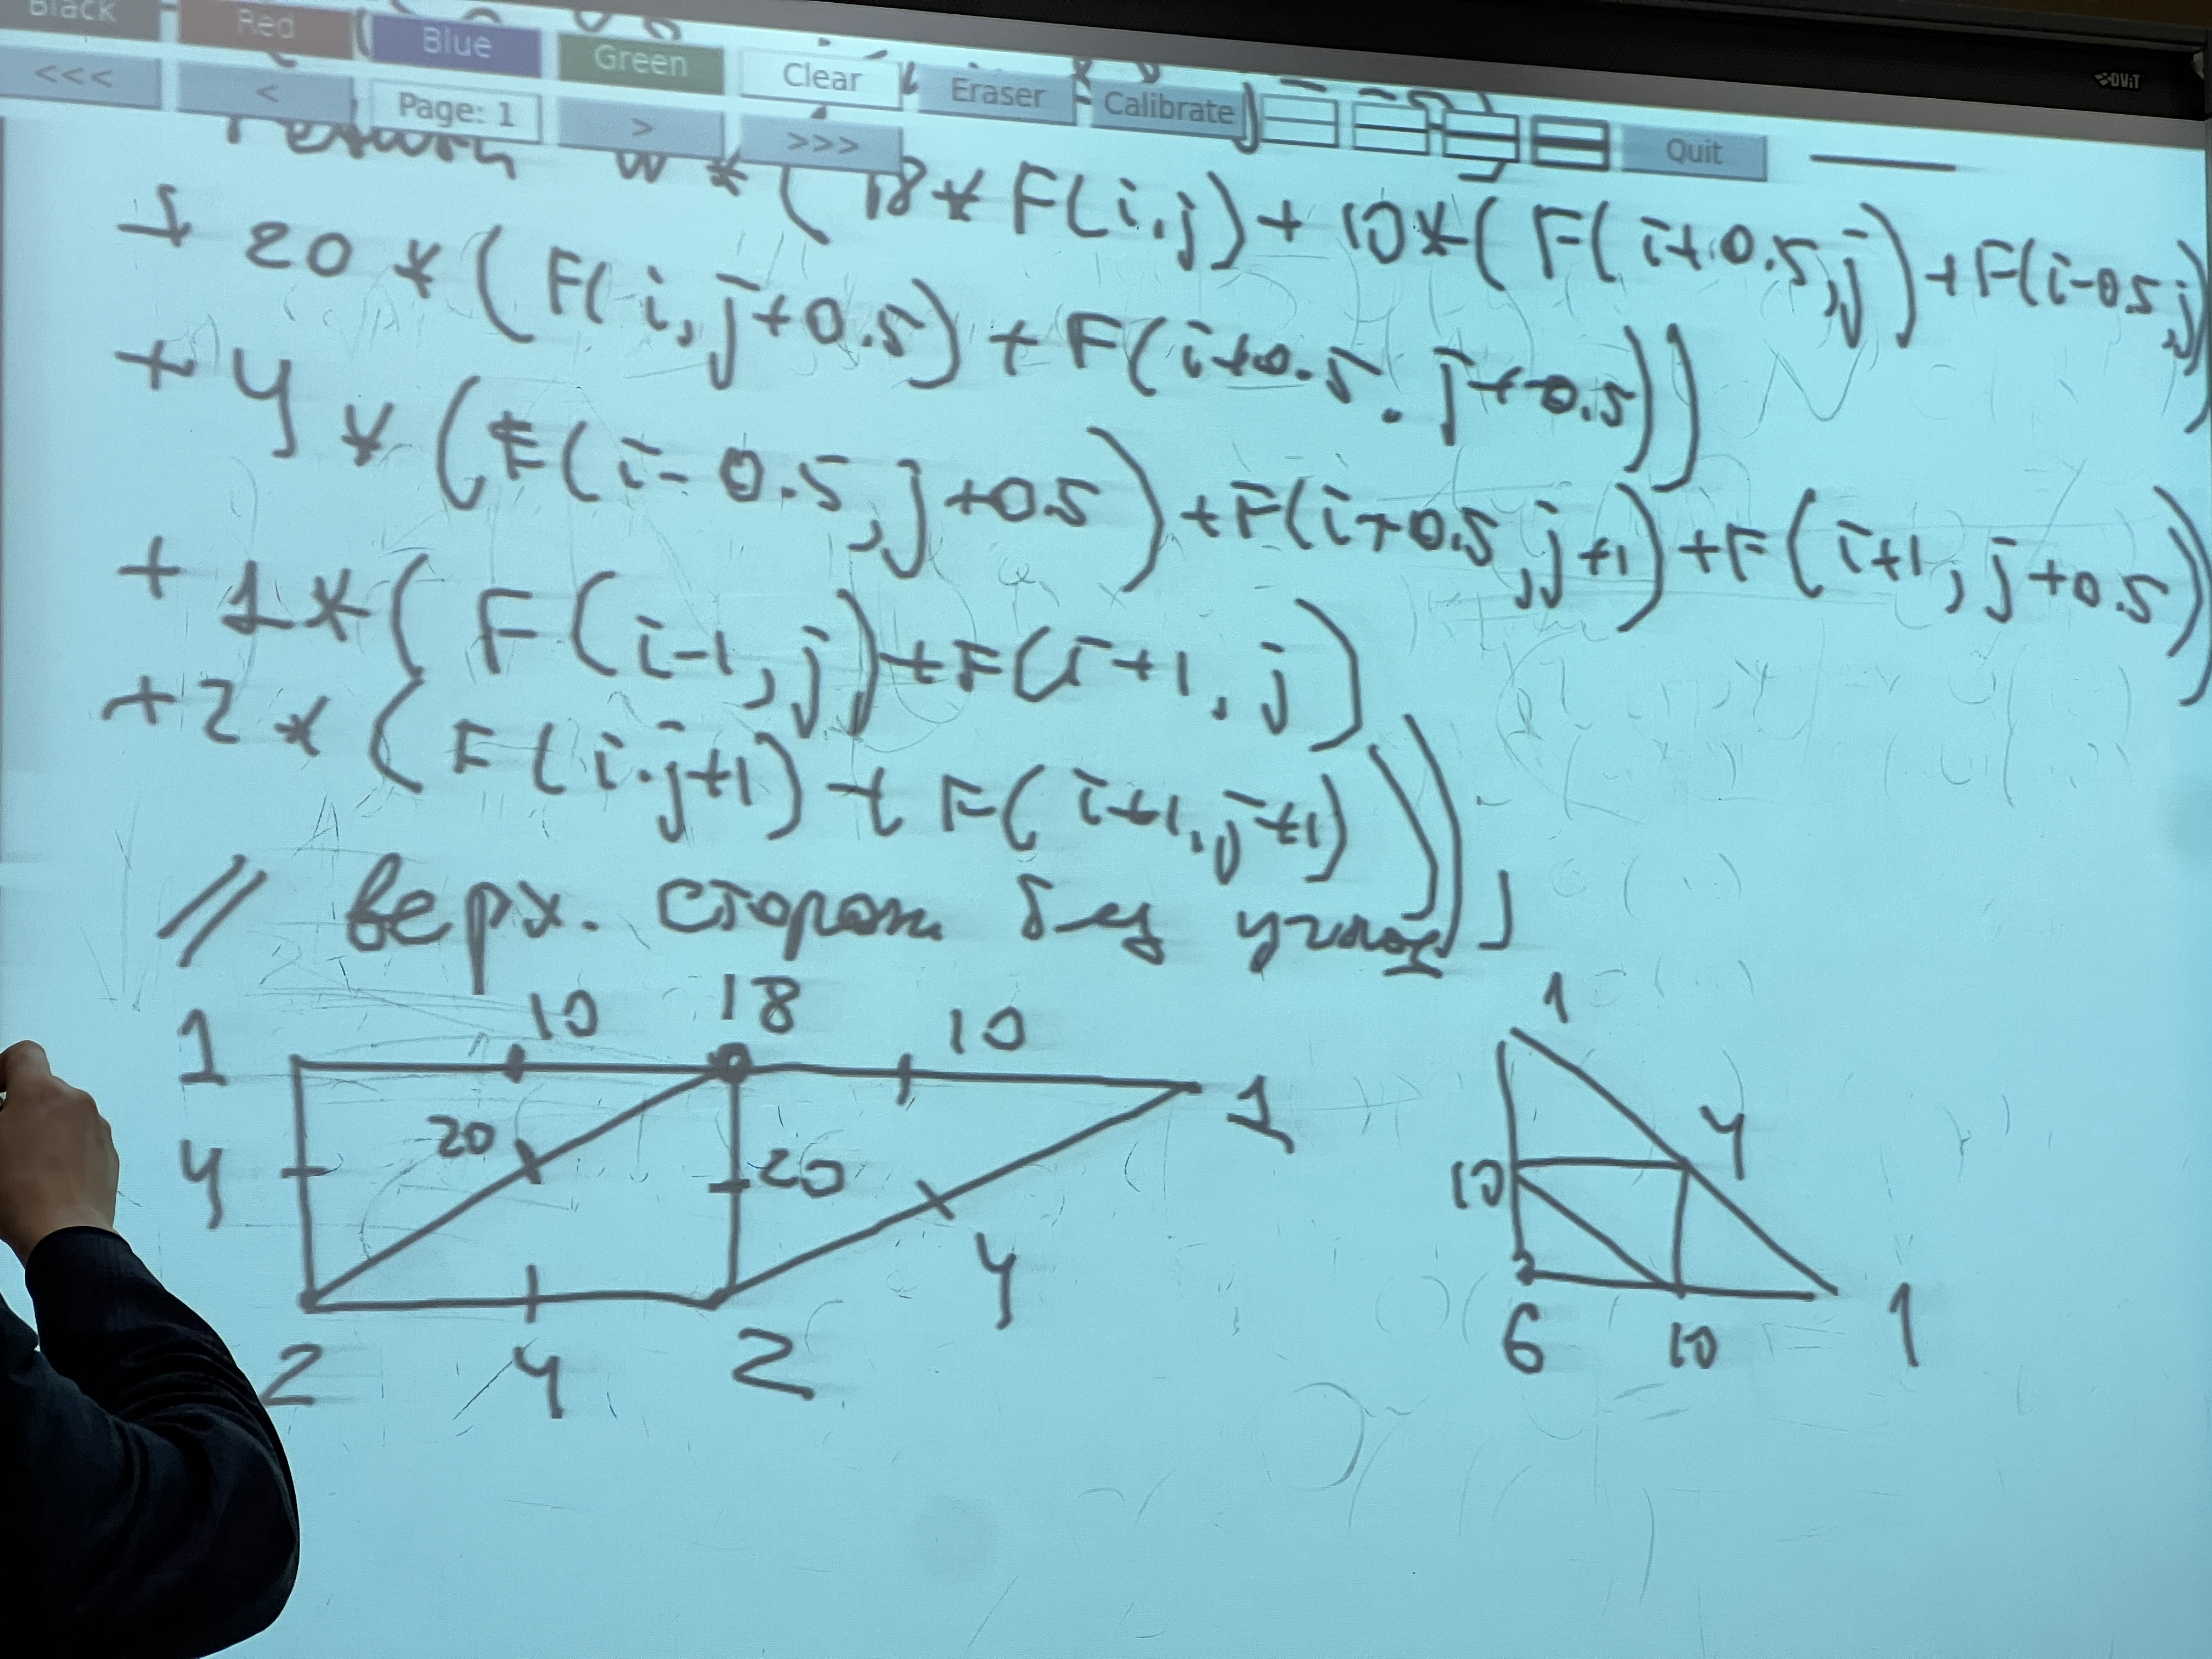 Black Red Blue Green Clear Eraser Calibrate Quit
<<< < Page: 1 > >>>
DViT
return w * (18 * F(i,j) + 10*(F(i+0.5,j)+F(i-0.5,j))
+ 20 * (F(i,j+0.5)+F(i+0.5.j+0.5))
+ 4 * (F(i-0.5,j+0.5)+F(i+0.5,j+1)+F(i+1,j+0.5))
+ 1*(F(i-1,j)+F(i+1,j)
+2*(F(i.j+1)+F(i+1,j+1)));
// верх. сторона без углов
10 18 10
1 1
4 20 20 4
2 4 2
1
4
10
6 10 1